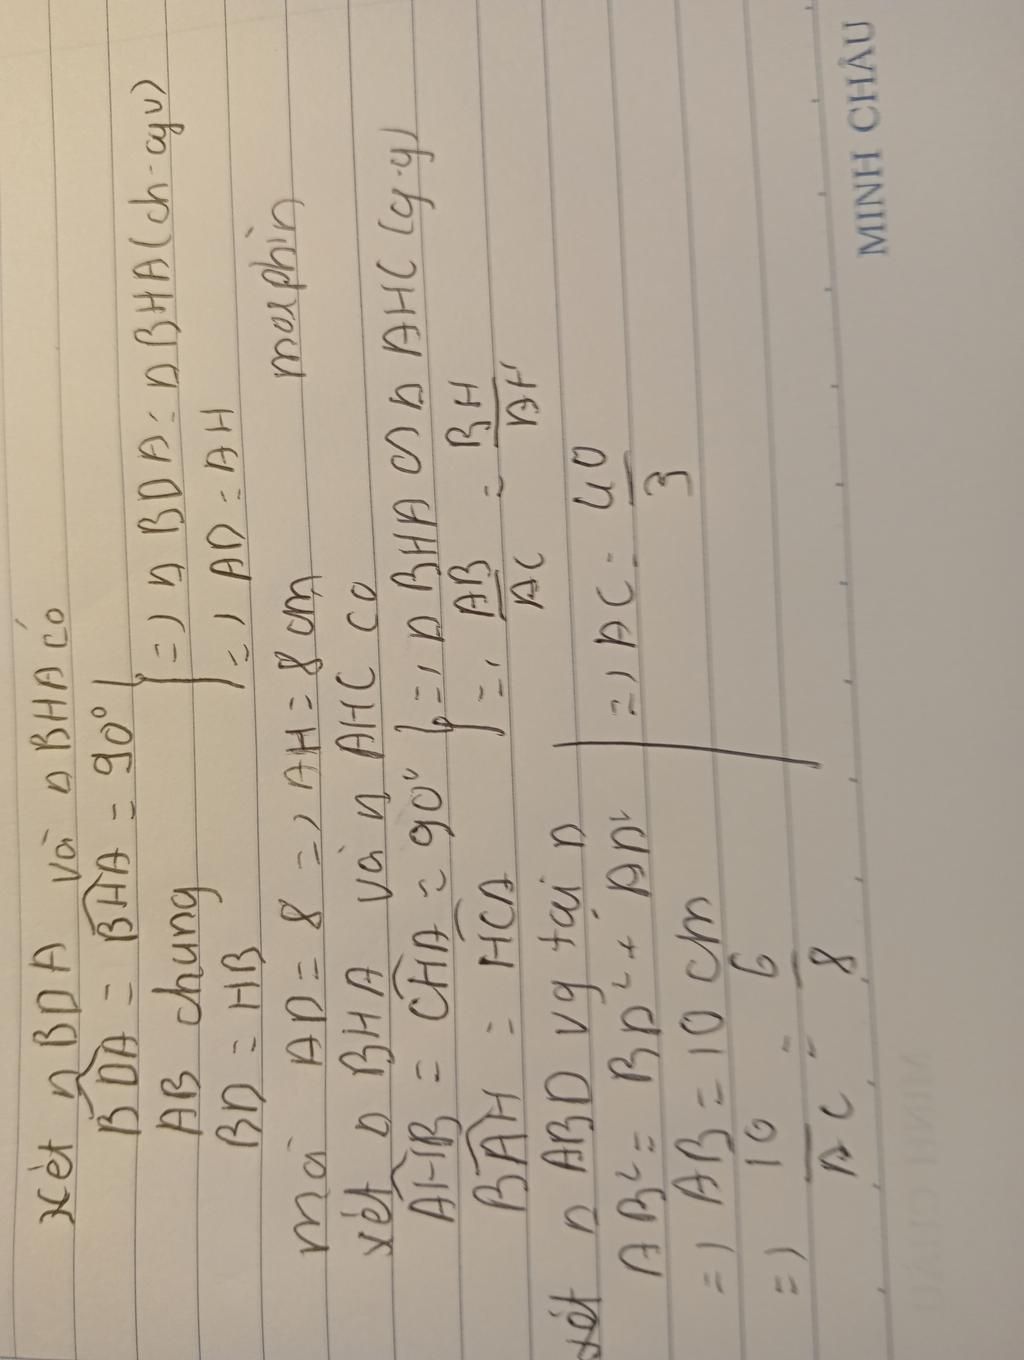 xét △ BDA và △ BHA có
BDA = BHA = 90°
AB chung
BD = HB
=) △ BDA = △ BHA (ch-cgv)
=) AD = AH
mà AD = 8 =) AH = 8 cm
morphin
xét △ BHA và △ AHC có
AHB = CHA = 90°
BAH = HCA
=) △ BHA ∽ △ AHC (g.g)
=) AB/AC = BH/AH
xét △ ABD vg tại D
AB² = BD² + AD²
=) AB = 10 cm
=) 10/AC = 6/8
=) AC = 40/3
MINH CHÂU